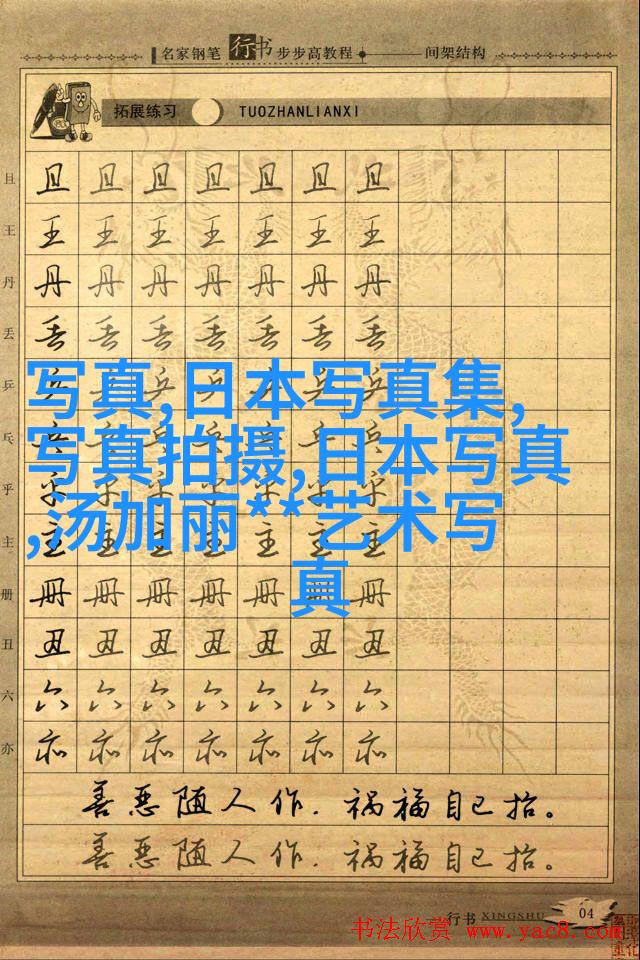 名家钢笔行书步步高教程 间架结构
拓展练习 TUOZHANLIANXI
且 且 且 且 且 且 且 且
王 王 王 王 王 王 王 王
丹 丹 丹 丹 丹 丹 丹 丹
丢 丢 丢 丢 丢 丢 丢 丢
写真,日本写真集,
乒
写真拍摄,日本写真
乓
,汤加丽**艺术写
乎
真
主 主 主 主 主 主 主 主
册 册 册 册 册 册 册 册
丑 丑 丑 丑 丑 丑 丑 丑
六 六 六 六 六 六 六 六
亦 亦 亦 亦 亦 亦 亦 亦
善恶随人作.祸福自己招。
善恶随人作.祸福自己招。
行书 XINGSHU 04
书法欣赏 www.yac8.com